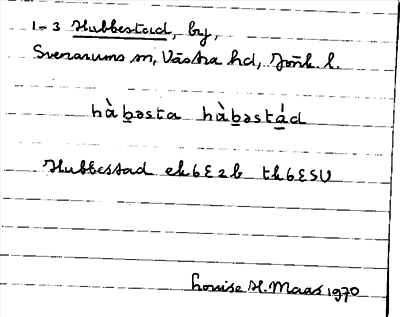 1-3 Hubbestad, by,
Svenarums sn, Västra hd, Jönk. l.
hàb̲əsta hàb̲əstá̲d
Hubbestad ek6E2b tk6ESU
Louise H. Maas 1970